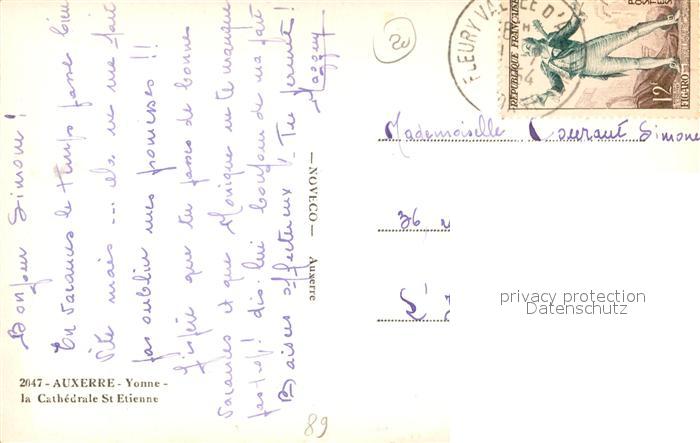 Bonjour Simone !
En vacances le temps passe bien
vite mais ... cela ne me fait
pas oublier mes promesses !!
J'espère que tu passes de bonnes
vacances et que Monique ne te manque
pas trop ! dis-lui bonjour de ma part
Baisers affectueux !
2047 - AUXERRE - Yonne -
la Cathédrale St Etienne
— NOVECO — Auxerre
20
FLEURY VALLÉE D'
RÉPUBLIQUE FRANÇAISE
POSTES
12F
FIGARO
Mademoiselle Courant Simone
36
privacy protection
Datenschutz
89